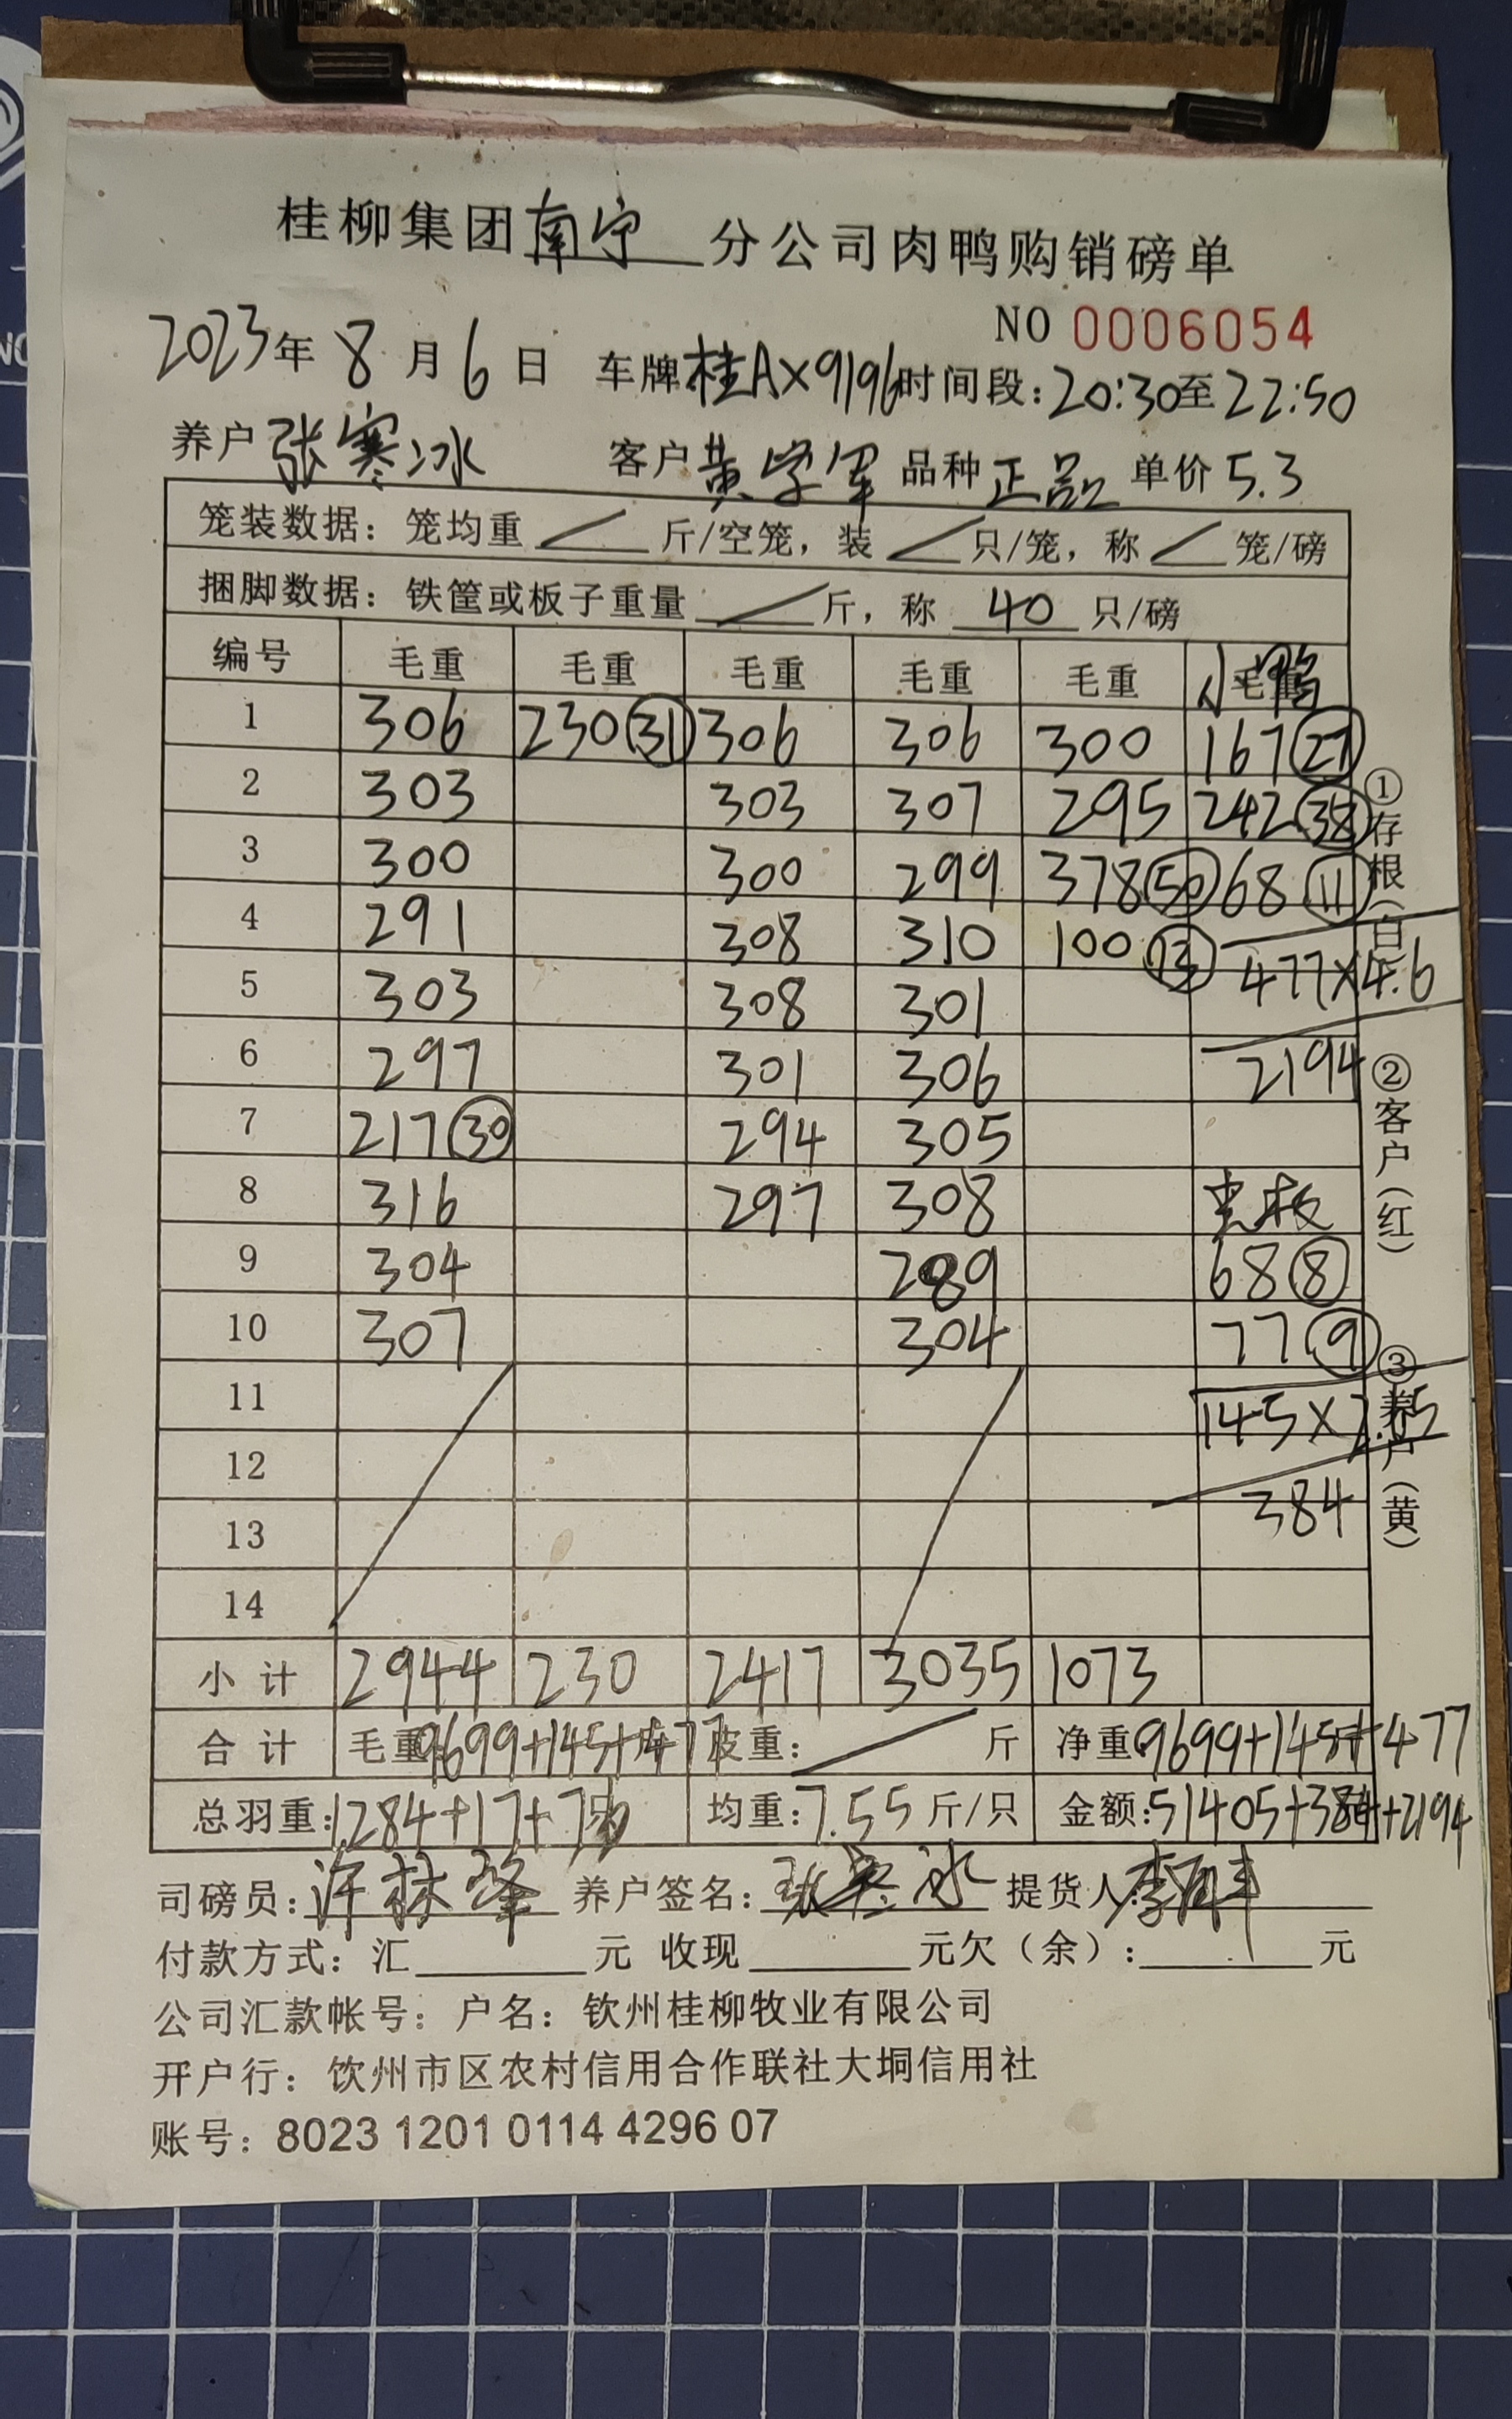 桂柳集团南宁分公司肉鸭购销磅单
NO 0006054
2023年8月6日 车牌桂AX9196时间段：20:30至22:50
养户张寒冰 客户黄学军 品种正品 单价5.3
笼装数据：笼均重／斤/空笼，装／只/笼，称／笼/磅
捆脚数据：铁筐或板子重量／斤，称 40 只/磅
编号 毛重 毛重 毛重 毛重 毛重 毛重 小鸭
1 306 230 31 306 306 300 167 27
2 303 303 307 295 242 38
3 300 300 299 378 50 68 11
4 291 308 310 100 13 477×4.6
5 303 308 301
6 297 301 306 2194
7 217 30 294 305
8 316 297 308
9 304 289 68 8
10 307 304 77 9
11 145×2.65
12
13 384
14
小计 2944 230 2417 3035 1073
合计 毛重9699+145+477 皮重：／斤 净重9699+145斤+477
总羽重：1284+17+76只 均重：7.55斤/只 金额：51405+384+2194
司磅员：许林峰 养户签名：张寒冰 提货人：
付款方式：汇 元 收现 元欠（余）： 元
公司汇款帐号：户名：钦州桂柳牧业有限公司
开户行：饮州市区农村信用合作联社大垌信用社
账号：8023 1201 0114 4296 07
①存根（白）
②客户（红）
③养户（黄）